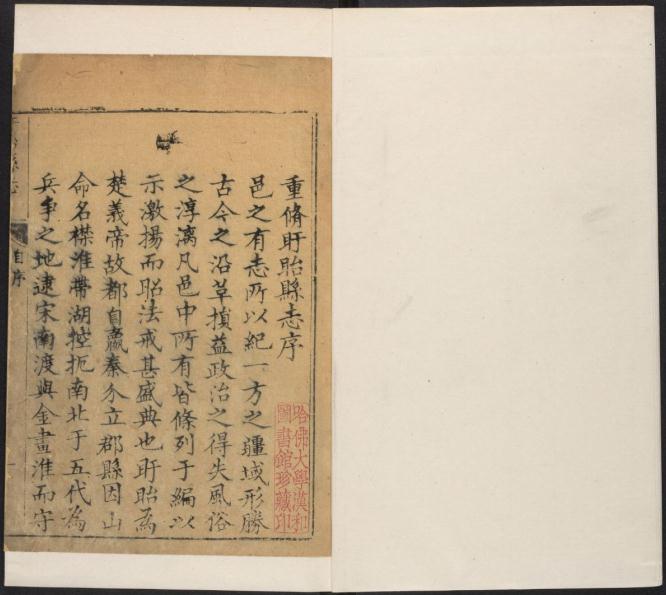 重脩盱眙縣志序
邑之有志所以紀一方之疆域形勝
古今之沿革損益政治之得失風俗
之淳漓凡邑中所有皆條列于編以
示激揚而昭法戒甚盛典也盱眙為
楚義帝故都自嬴秦分立郡縣因山
命名襟淮帶湖控扼南北于五代為
兵爭之地逮宋南渡與金畫淮而守
自序
哈佛大學漢和
圖書館珍藏印